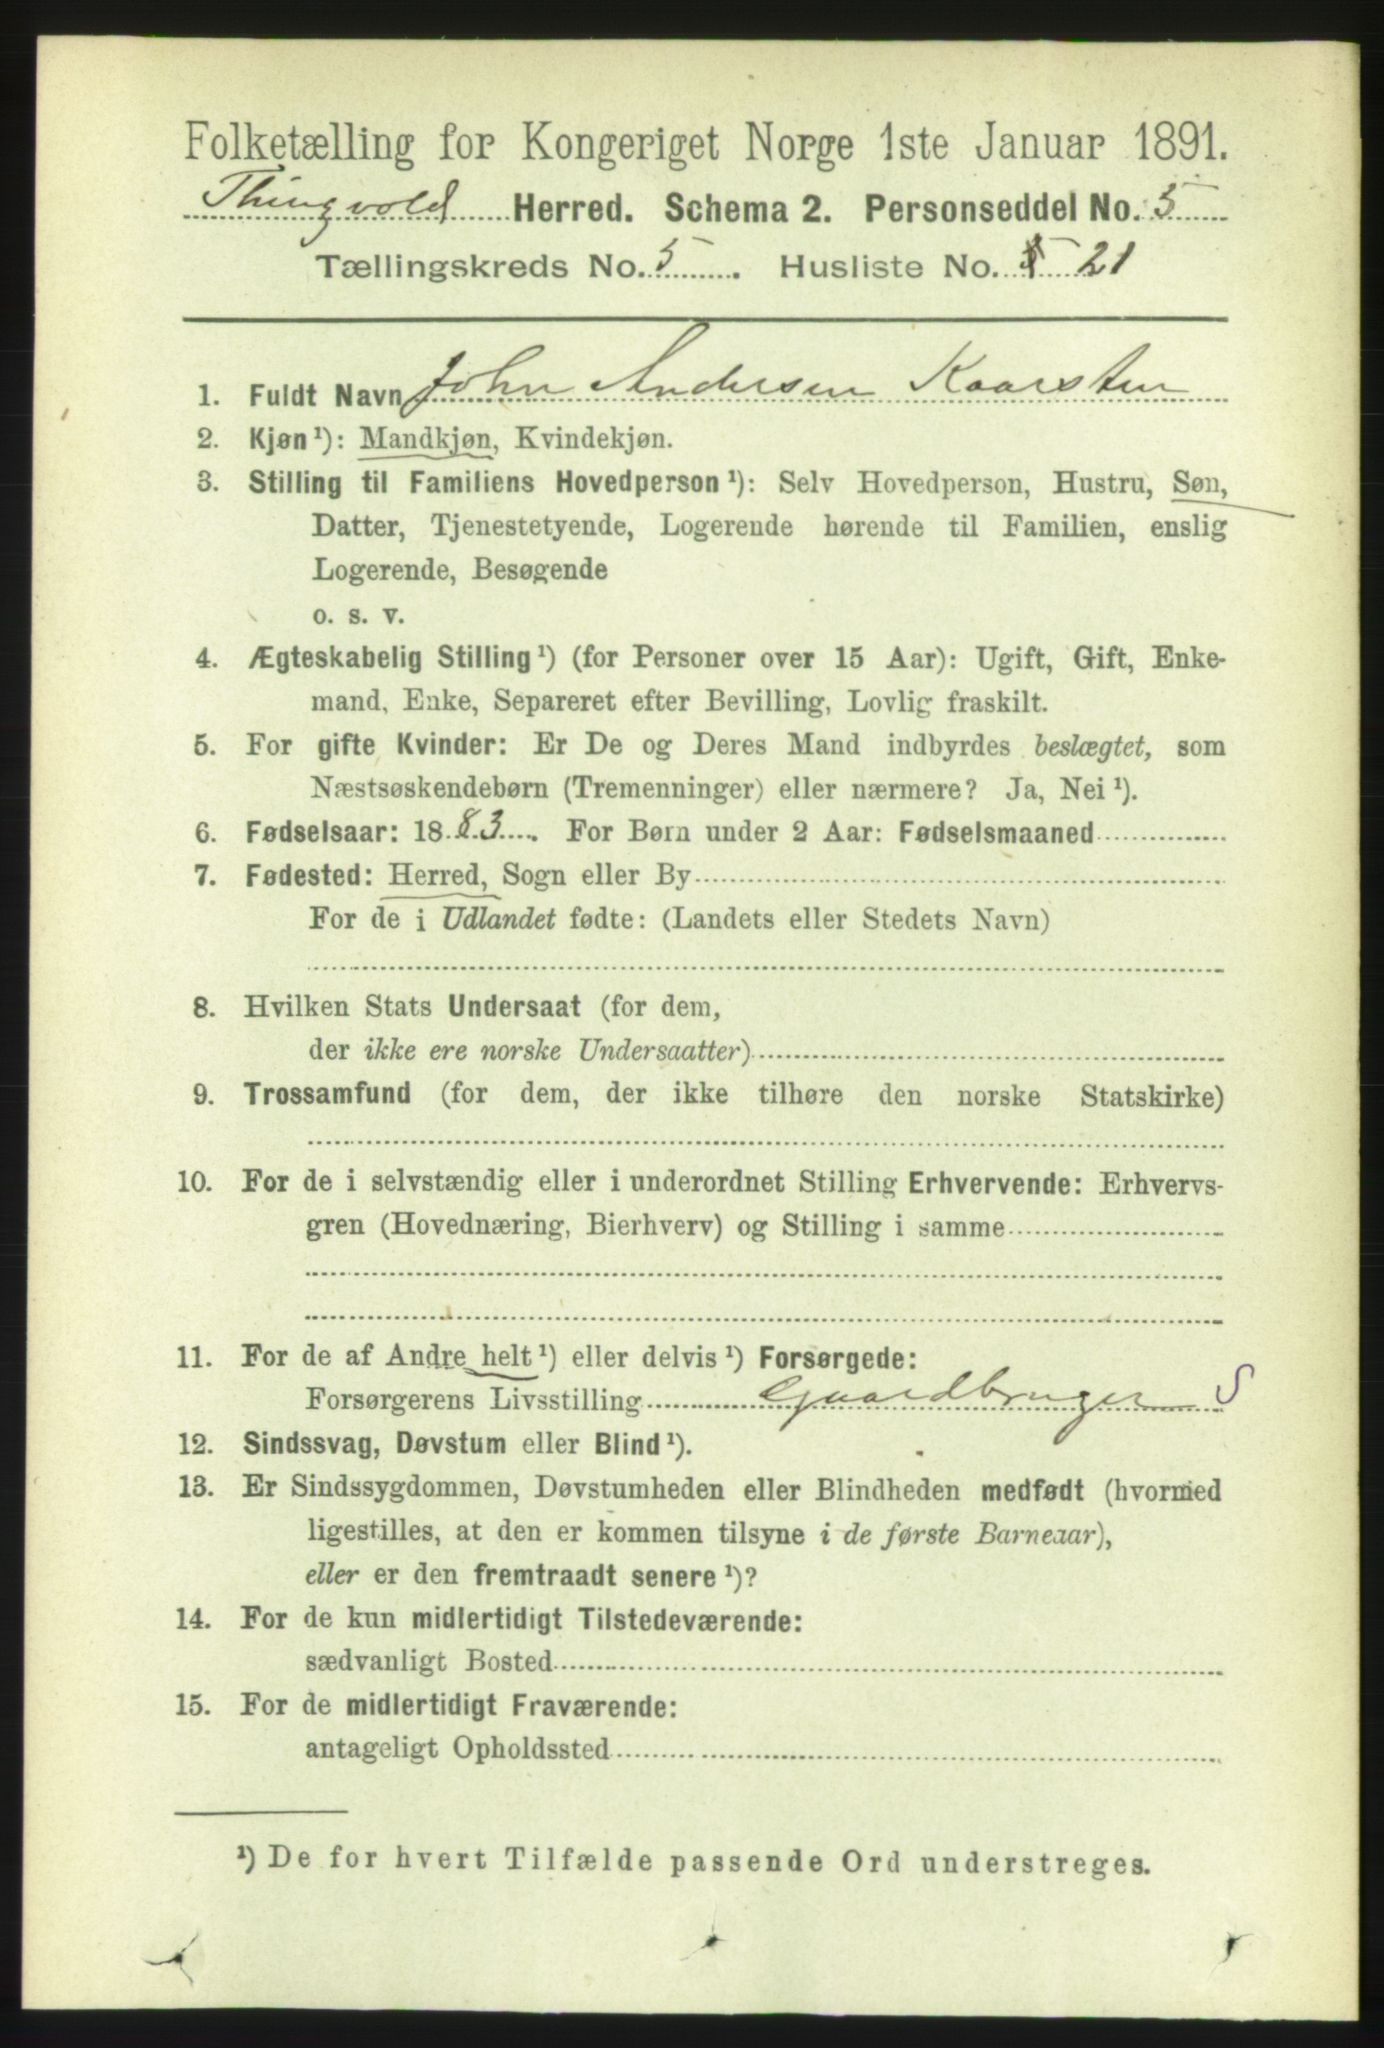 Folketælling for Kongeriget Norge 1ste Januar 1891.
Thingvold Herred. Schema 2. Personseddel No. 5
Tællingskreds No. 5. Husliste No. 21
1. Fuldt Navn John Andersen Kaarsten
2. Kjøn¹): Mandkjøn, Kvindekjøn.
3. Stilling til Familiens Hovedperson¹): Selv Hovedperson, Hustru, Søn,
Datter, Tjenestetyende, Logerende hørende til Familien, enslig
Logerende, Besøgende
o. s. v.
4. Ægteskabelig Stilling¹) (for Personer over 15 Aar): Ugift, Gift, Enke-
mand, Enke, Separeret efter Bevilling, Lovlig fraskilt.
5. For gifte Kvinder: Er De og Deres Mand indbyrdes beslægtet, som
Næstsøskendebørn (Tremenninger) eller nærmere? Ja, Nei¹).
6. Fødselsaar: 1883. For Børn under 2 Aar: Fødselsmaaned
7. Fødested: Herred, Sogn eller By
For de i Udlandet fødte: (Landets eller Stedets Navn)
8. Hvilken Stats Undersaat (for dem,
der ikke ere norske Undersaatter)
9. Trossamfund (for dem, der ikke tilhøre den norske Statskirke)
10. For de i selvstændig eller i underordnet Stilling Erhvervende: Erhvervs-
gren (Hovednæring, Bierhverv) og Stilling i samme
11. For de af Andre helt¹) eller delvis¹) Forsørgede:
Forsørgerens Livsstilling Gaardbruger S
12. Sindssvag, Døvstum eller Blind¹).
13. Er Sindssygdommen, Døvstumheden eller Blindheden medfødt (hvormed
ligestilles, at den er kommen tilsyne i de første Barneaar),
eller er den fremtraadt senere¹)?
14. For de kun midlertidigt Tilstedeværende:
sædvanligt Bosted
15. For de midlertidigt Fraværende:
antageligt Opholdssted
¹) De for hvert Tilfælde passende Ord understreges.